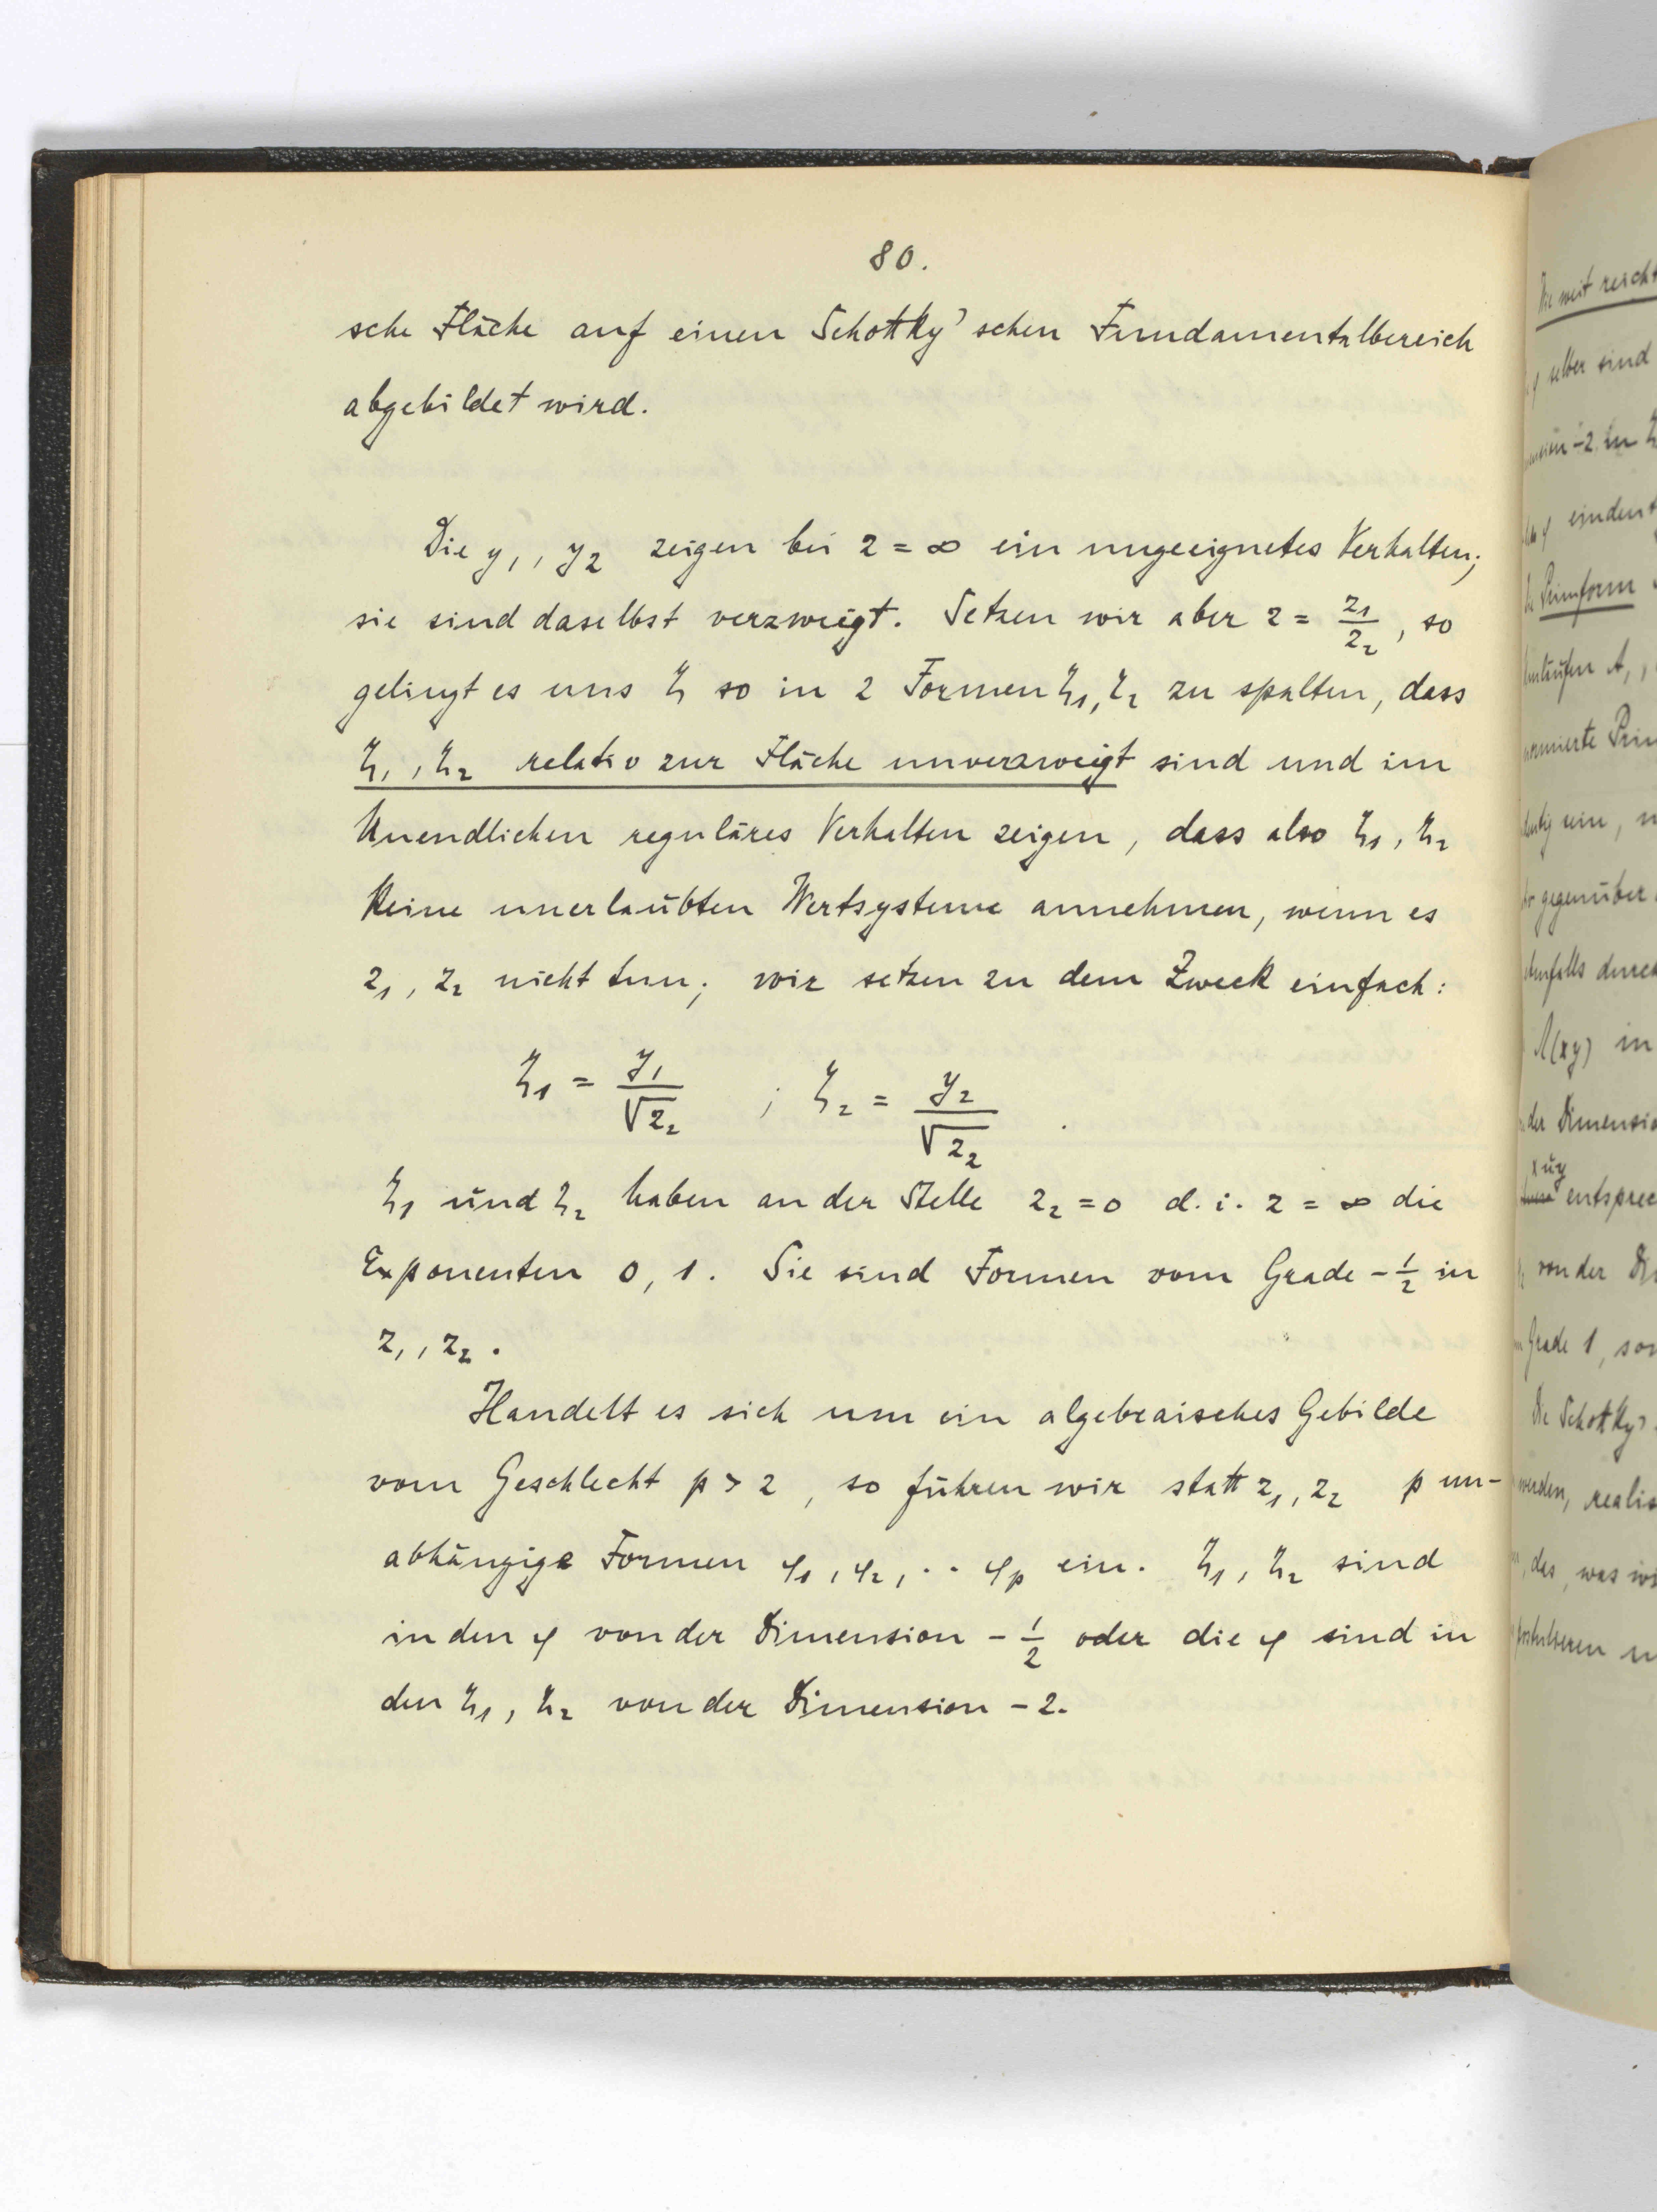 80.
sche Fläche auf einen Schottky'schen Fundamentalbereich
abgebildet wird.
Die y₁, y₂ zeigen bei z = ∞ ein ungeeignetes Verhalten;
sie sind daselbst verzweigt. Setzen wir aber z = z₁/z₂, so
gelingt es uns ζ so in 2 Formen ζ₁, ζ₂ zu spalten, dass
ζ₁, ζ₂ relativ zur Fläche unverzweigt sind und im
Unendlichen reguläres Verhalten zeigen, dass also ζ₁, ζ₂
keine unerlaubten Wertsysteme annehmen, wenn es
z₁, z₂ nicht tun; wir setzen zu dem Zweck einfach:
ζ₁ = y₁/√z₂ ; ζ₂ = y₂/√z₂ .
ζ₁ und ζ₂ haben an der Stelle z₂ = 0 d. i. z = ∞ die
Exponenten 0, 1. Sie sind Formen vom Grade - 1/2 in
z₁, z₂.
Handelt es sich um ein algebraisches Gebilde
vom Geschlecht p > 2, so führen wir statt z₁, z₂ p un-
abhängige Formen φ₁, φ₂, .. φₚ ein. ζ₁, ζ₂ sind
in den φ von der Dimension - 1/2 oder die φ sind in
den ζ₁, ζ₂ von der Dimension - 2.
Die weit reicht
selber sind
-2 in
φ eindeut
Primform
gegenüber
in
der Dimensio
entsprec
von der
Grade 1,
Die Schottky'
werden,
das, was